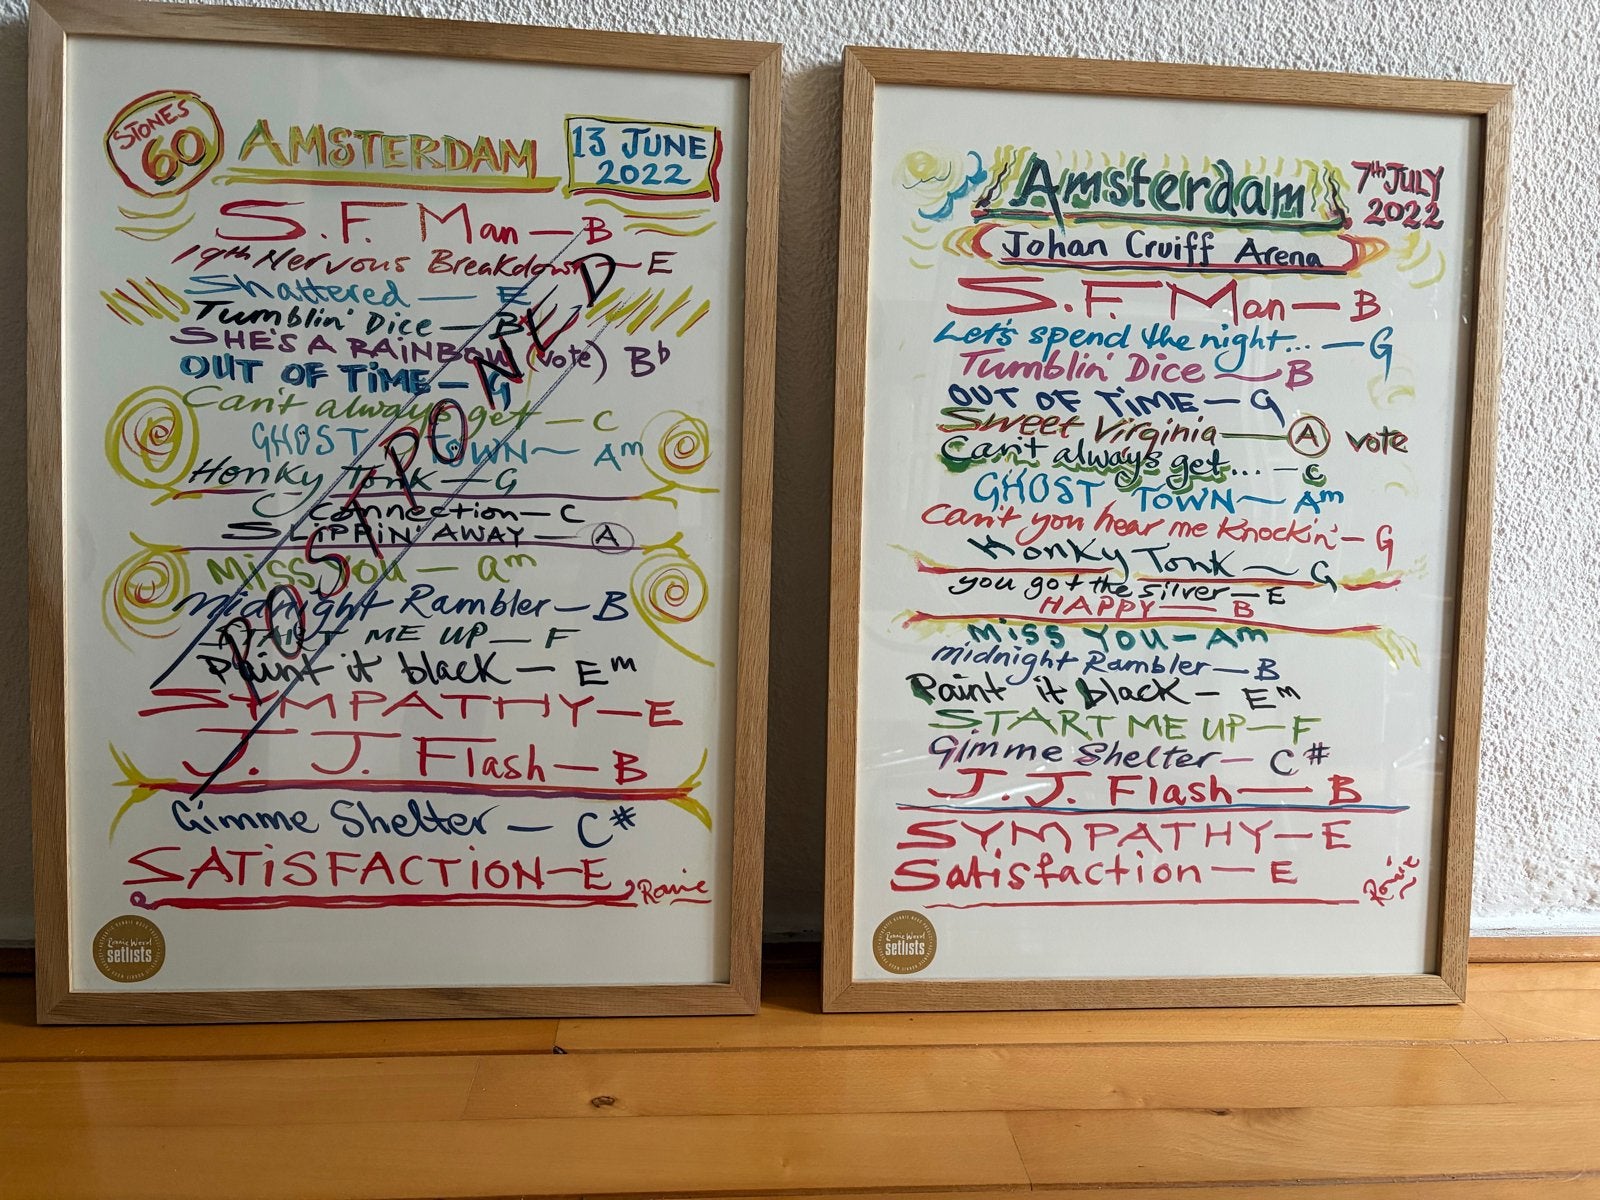 STONES
60
AMSTERDAM
13 JUNE
2022
S.F. Man — B
19th Nervous Breakdown — E
Shattered — E
Tumblin' Dice — B
SHE'S A RAINBOW (vote) Bb
OUT OF TiME — G
Can't always get — C
GHOST TOWN ~ Am
Honky Tonk — G
Connection — C
SLiPPiN' AWAY — A
Miss You — am
Midnight Rambler — B
START ME UP — F
Paint it black — Em
SYMPATHY — E
J. J. Flash — B
POSTPONED
Gimme Shelter — C#
SATiSFACTiON — E
Ronnie
Ronnie Wood
setlists
Amsterdam
7th JULY
2022
Johan Cruiff Arena
S.F. Man — B
Let's spend the night... — G
Tumblin' Dice ~ B
OUT OF TiME — G
Sweet Virginia — A vote
Can't always get... — C
GHOST TOWN ~ Am
Can't you hear me Knockin' — G
Honky Tonk ~ G
you got the silver — E
HAPPY — B
Miss YOU — Am
Midnight Rambler — B
Paint it black — Em
START ME UP — F
Gimme Shelter — C#
J. J. Flash — B
SYMPATHY — E
Satisfaction — E
Ronnie
Ronnie Wood
setlists